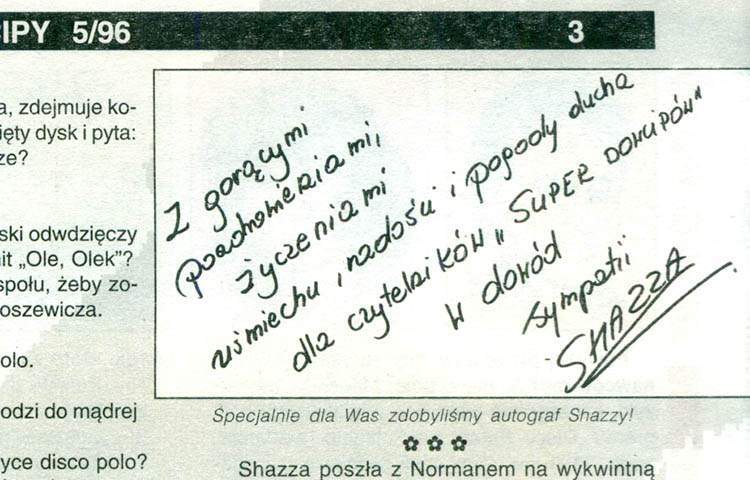 IPY 5/96
3
a, zdejmuje ko-
ięty dysk i pyta:
ze?
ski odwdzięczy
nit „Ole, Olek"?
społu, żeby zo-
oszewicza.
olo.
odzi do mądrej
yce disco polo?
Z gorącymi
pozdrowieniami,
życzeniami
uśmiechu, radości i pogody ducha
dla czytelników „SUPER DOWCIPÓW"
w dowód
sympatii
SHAZZA
Specjalnie dla Was zdobyliśmy autograf Shazzy!
Shazza poszła z Normanem na wykwintną